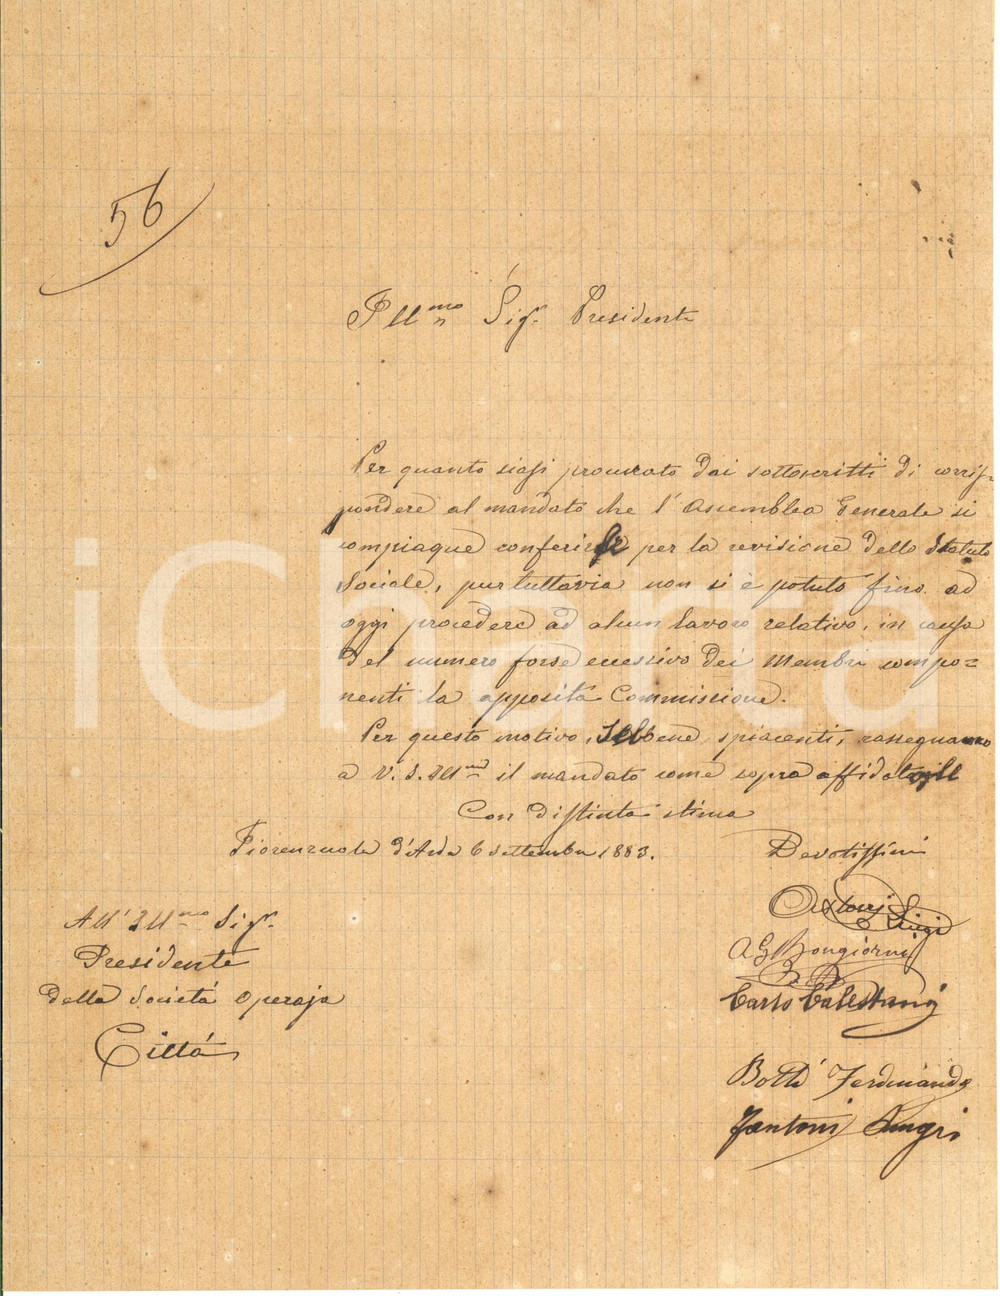 56
Ill.mo Sig.r Presidente
Per quanto siasi procurato dai sottoscritti di corris-
pondere al mandato che l'Assemblea Generale si
compiaque conferirle per la revisione dello Statuto
Sociale, pur tuttavia non si è potuto fino ad
oggi procedere ad alcun lavoro relativo, in causa
del numero forse eccessivo dei Membri compo=
nenti la apposita Commissione.
Per questo motivo, sebbene spiacenti, rassegnano
a V. S. Ill.ma il mandato come sopra affidatogli
Con distinta stima
Fiorenzuola d'Arda 6 settembre 1883.
Devotissimi
Luigi
AG Bongiorni
Carlo Calestani
Botti Ferdinando
Fantoni Luigi
All'Ill.mo Sig.r
Presidente
della Società Operaja
Città
iCharta